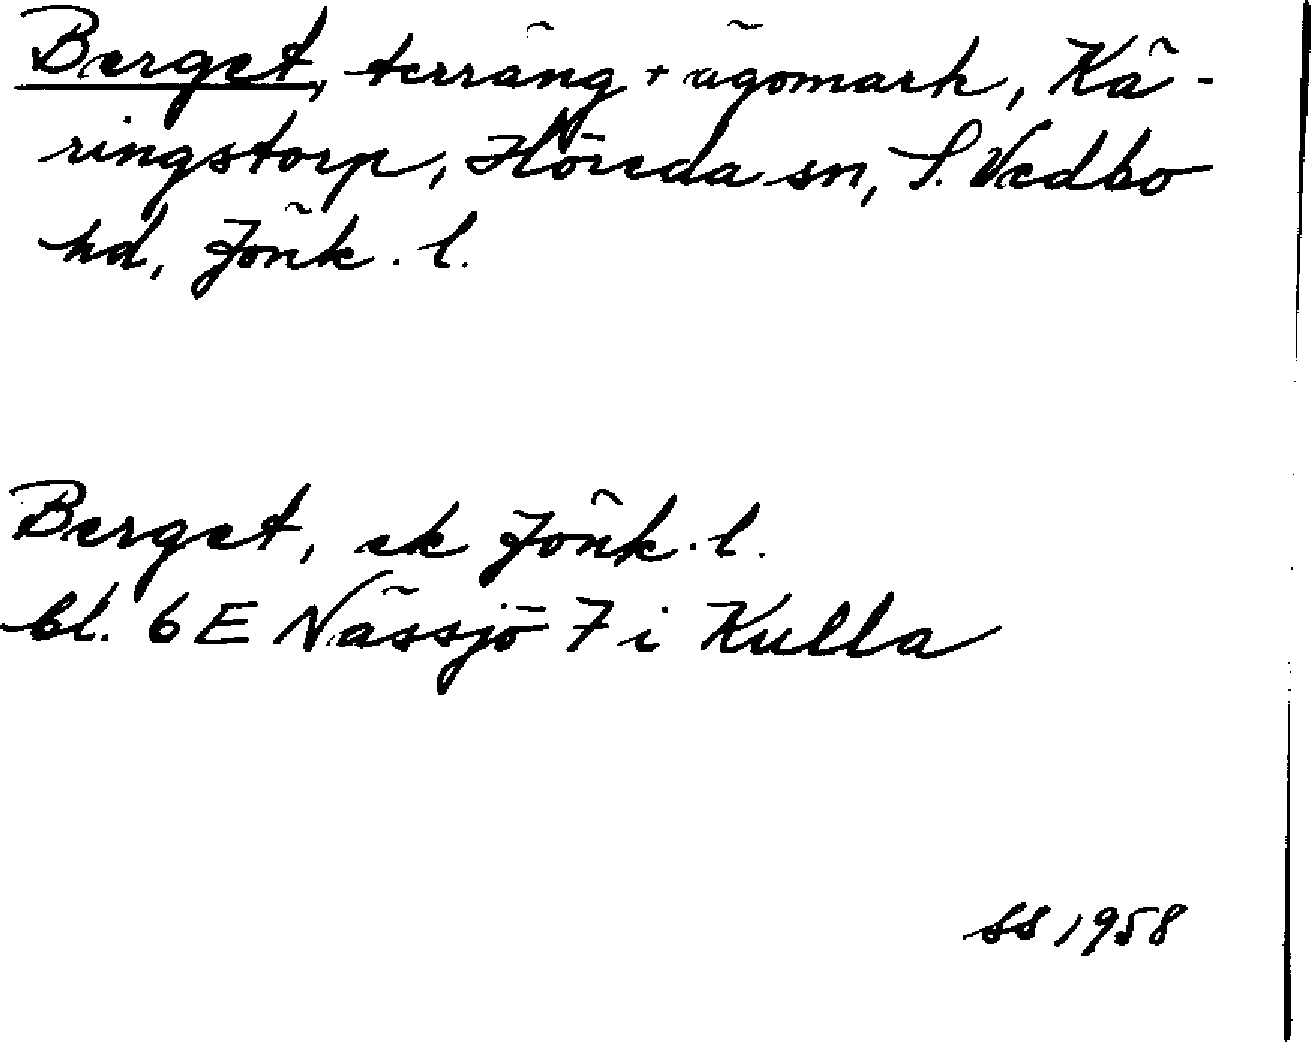 Berget, terräng + ägomark, Kä-
ringstorp, Höreda sn, S. Vedbo
hd, Jönk. l.
Berget, ek Jönk. l.
bl. 6 E Nässjö 7 i Kulla
SS 1958